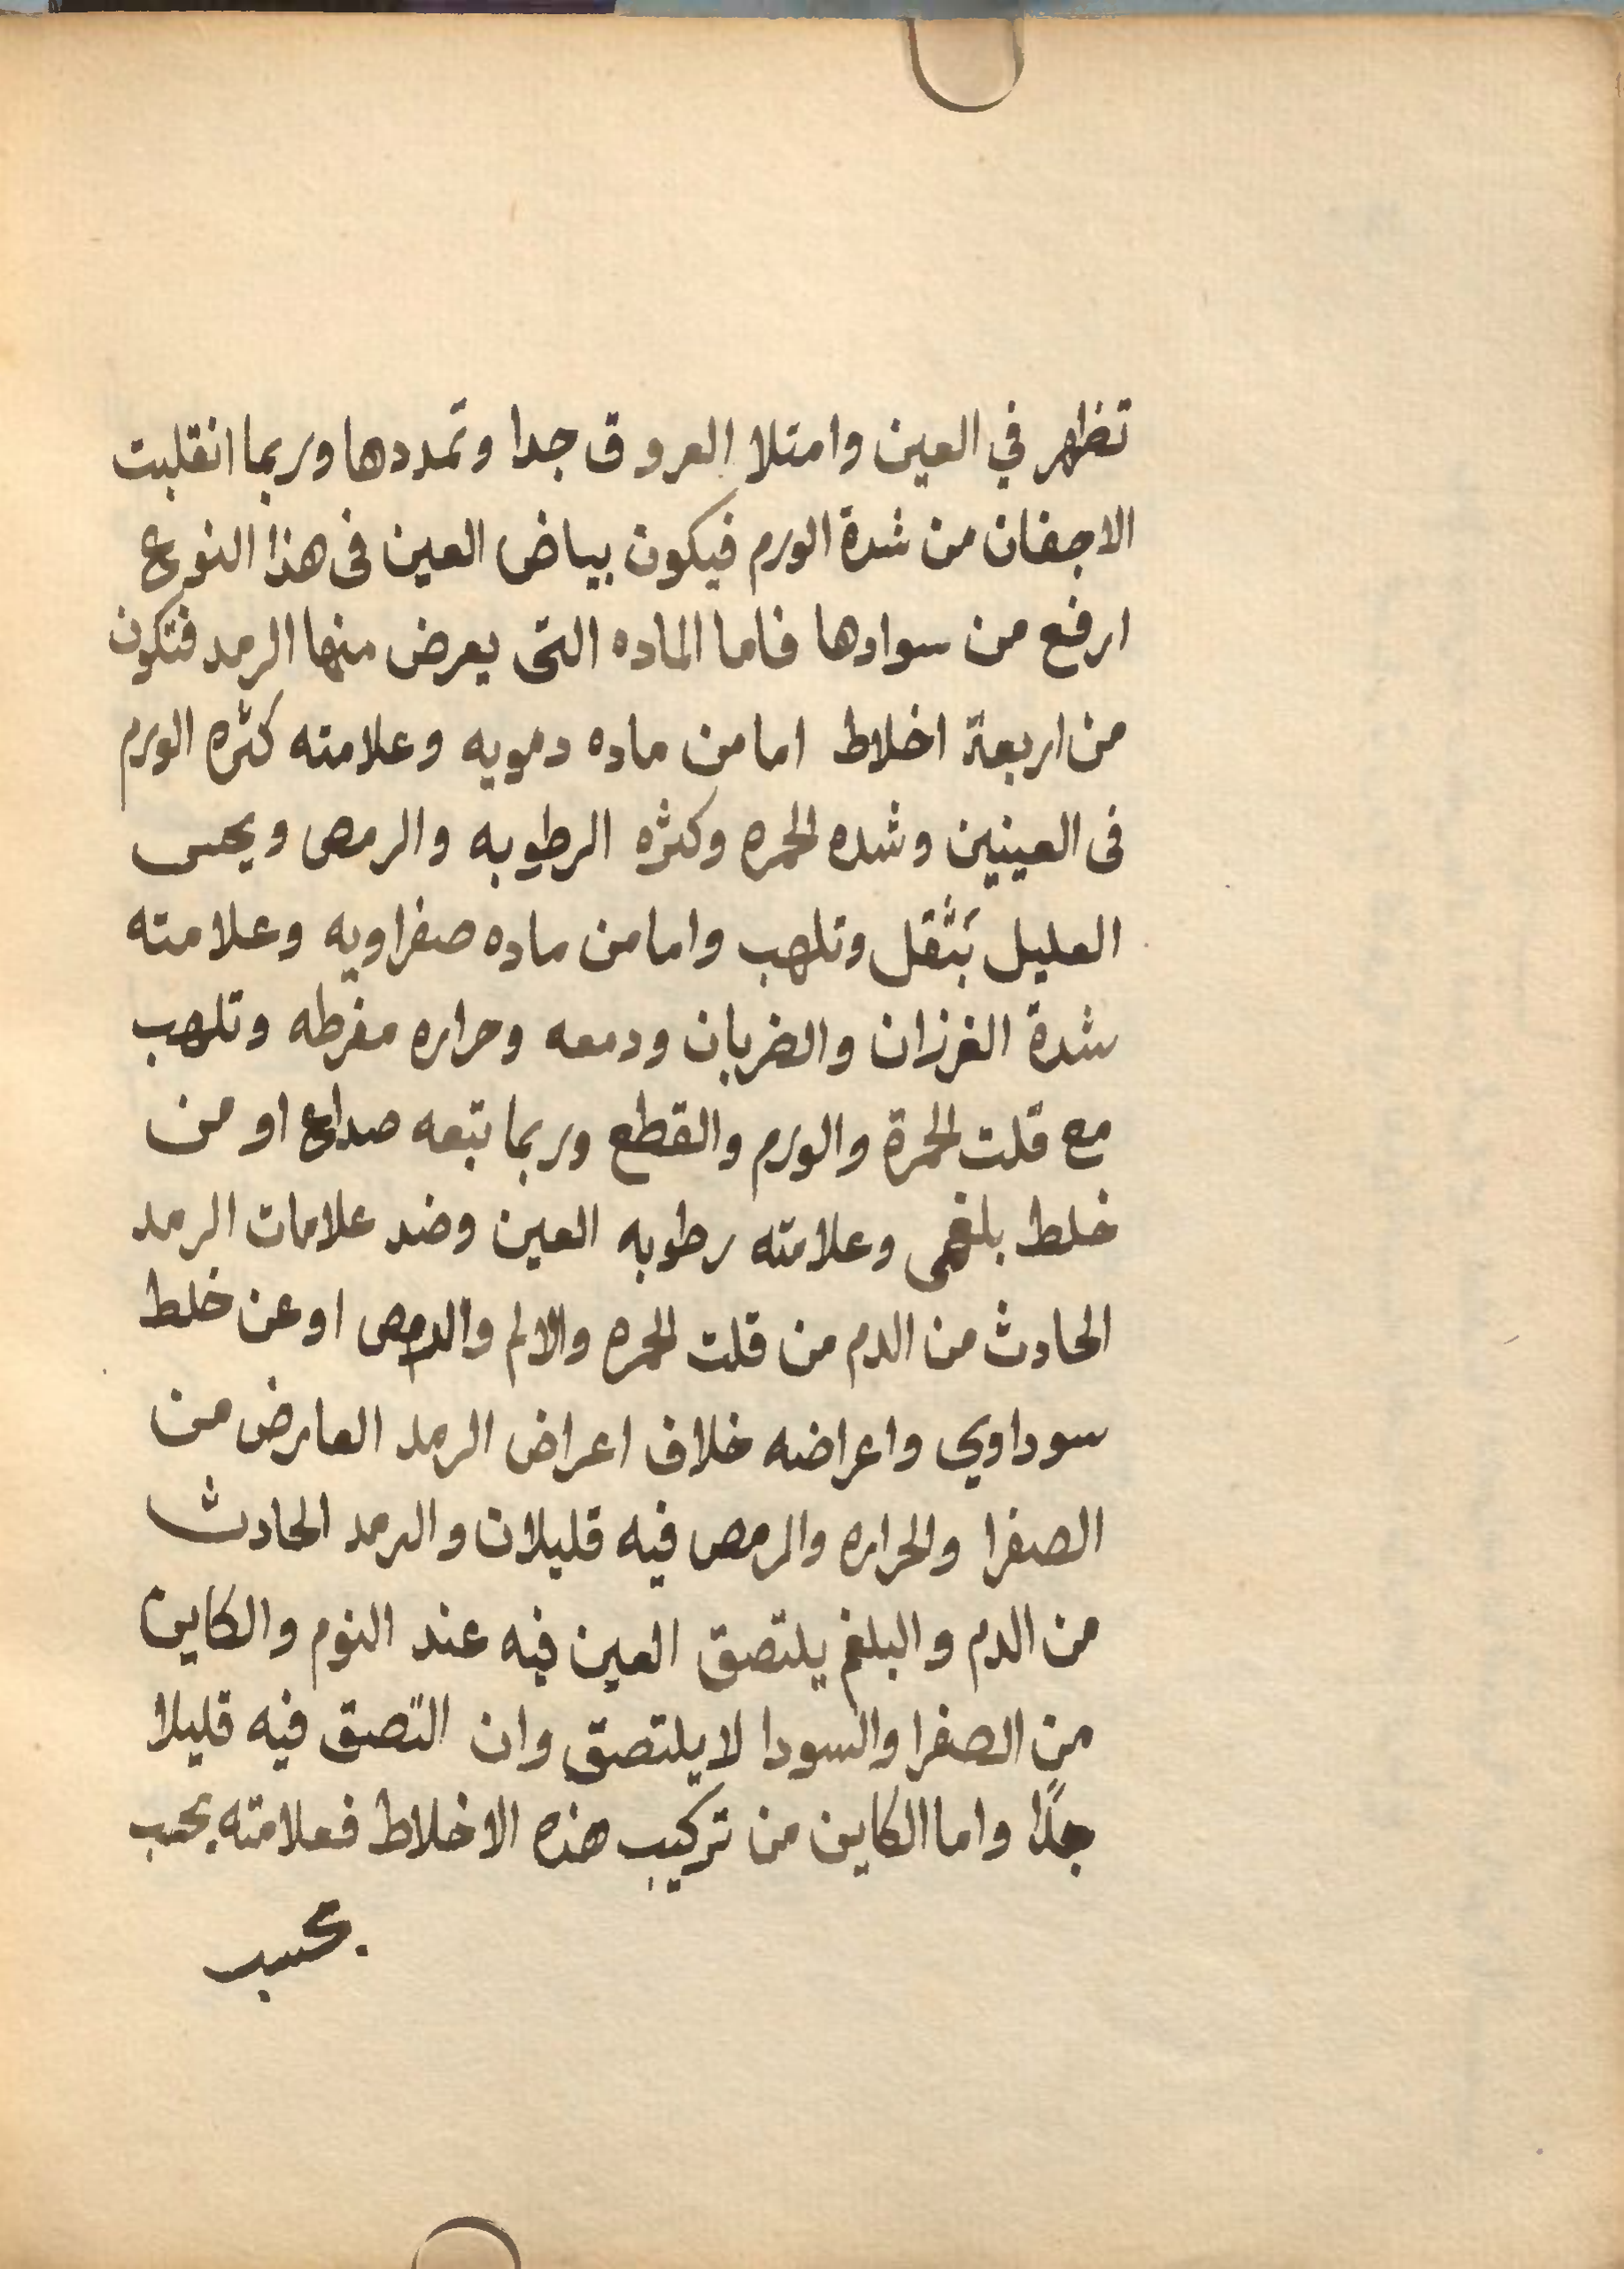 تظهر في العين وامتلا العروق جدا وتمددها وربما انقلبت
الاجفان من شدة الورم فيكون بياض العين فى هذا النوع
ارفع من سوادها فاما الماده التى يعرض منها الرمد فتكون
من اربعة اخلاط اما من ماده دمويه وعلامته كثره الورم
فى العينين وشده الحمره وكثره الرطوبه والرمص ويحس
العليل بثقل وتلهب واما من ماده صفراويه وعلامته
شدة الغرزان والضربان ودمعه وحراره مفرطه وتلهب
مع قلت الحمرة والورم والقطع وربما تبعه صداع او من
خلط بلغمى وعلامته رطوبه العين وضد علامات الرمد
الحادث من الدم من قلت الحمره والالم والرمص او عن خلط
سوداوي واعراضه خلاف اعراض الرمد العارض من
الصفرا والحراره والرمص فيه قليلان والرمد الحادث
من الدم والبلغم يلتصق العين فيه عند النوم والكاين
من الصفرا والسودا لا يلتصق وان التصق فيه قليلا
جدًا واما الكاين من تركيب هذه الاخلاط فعلامته بحسب
بحسب